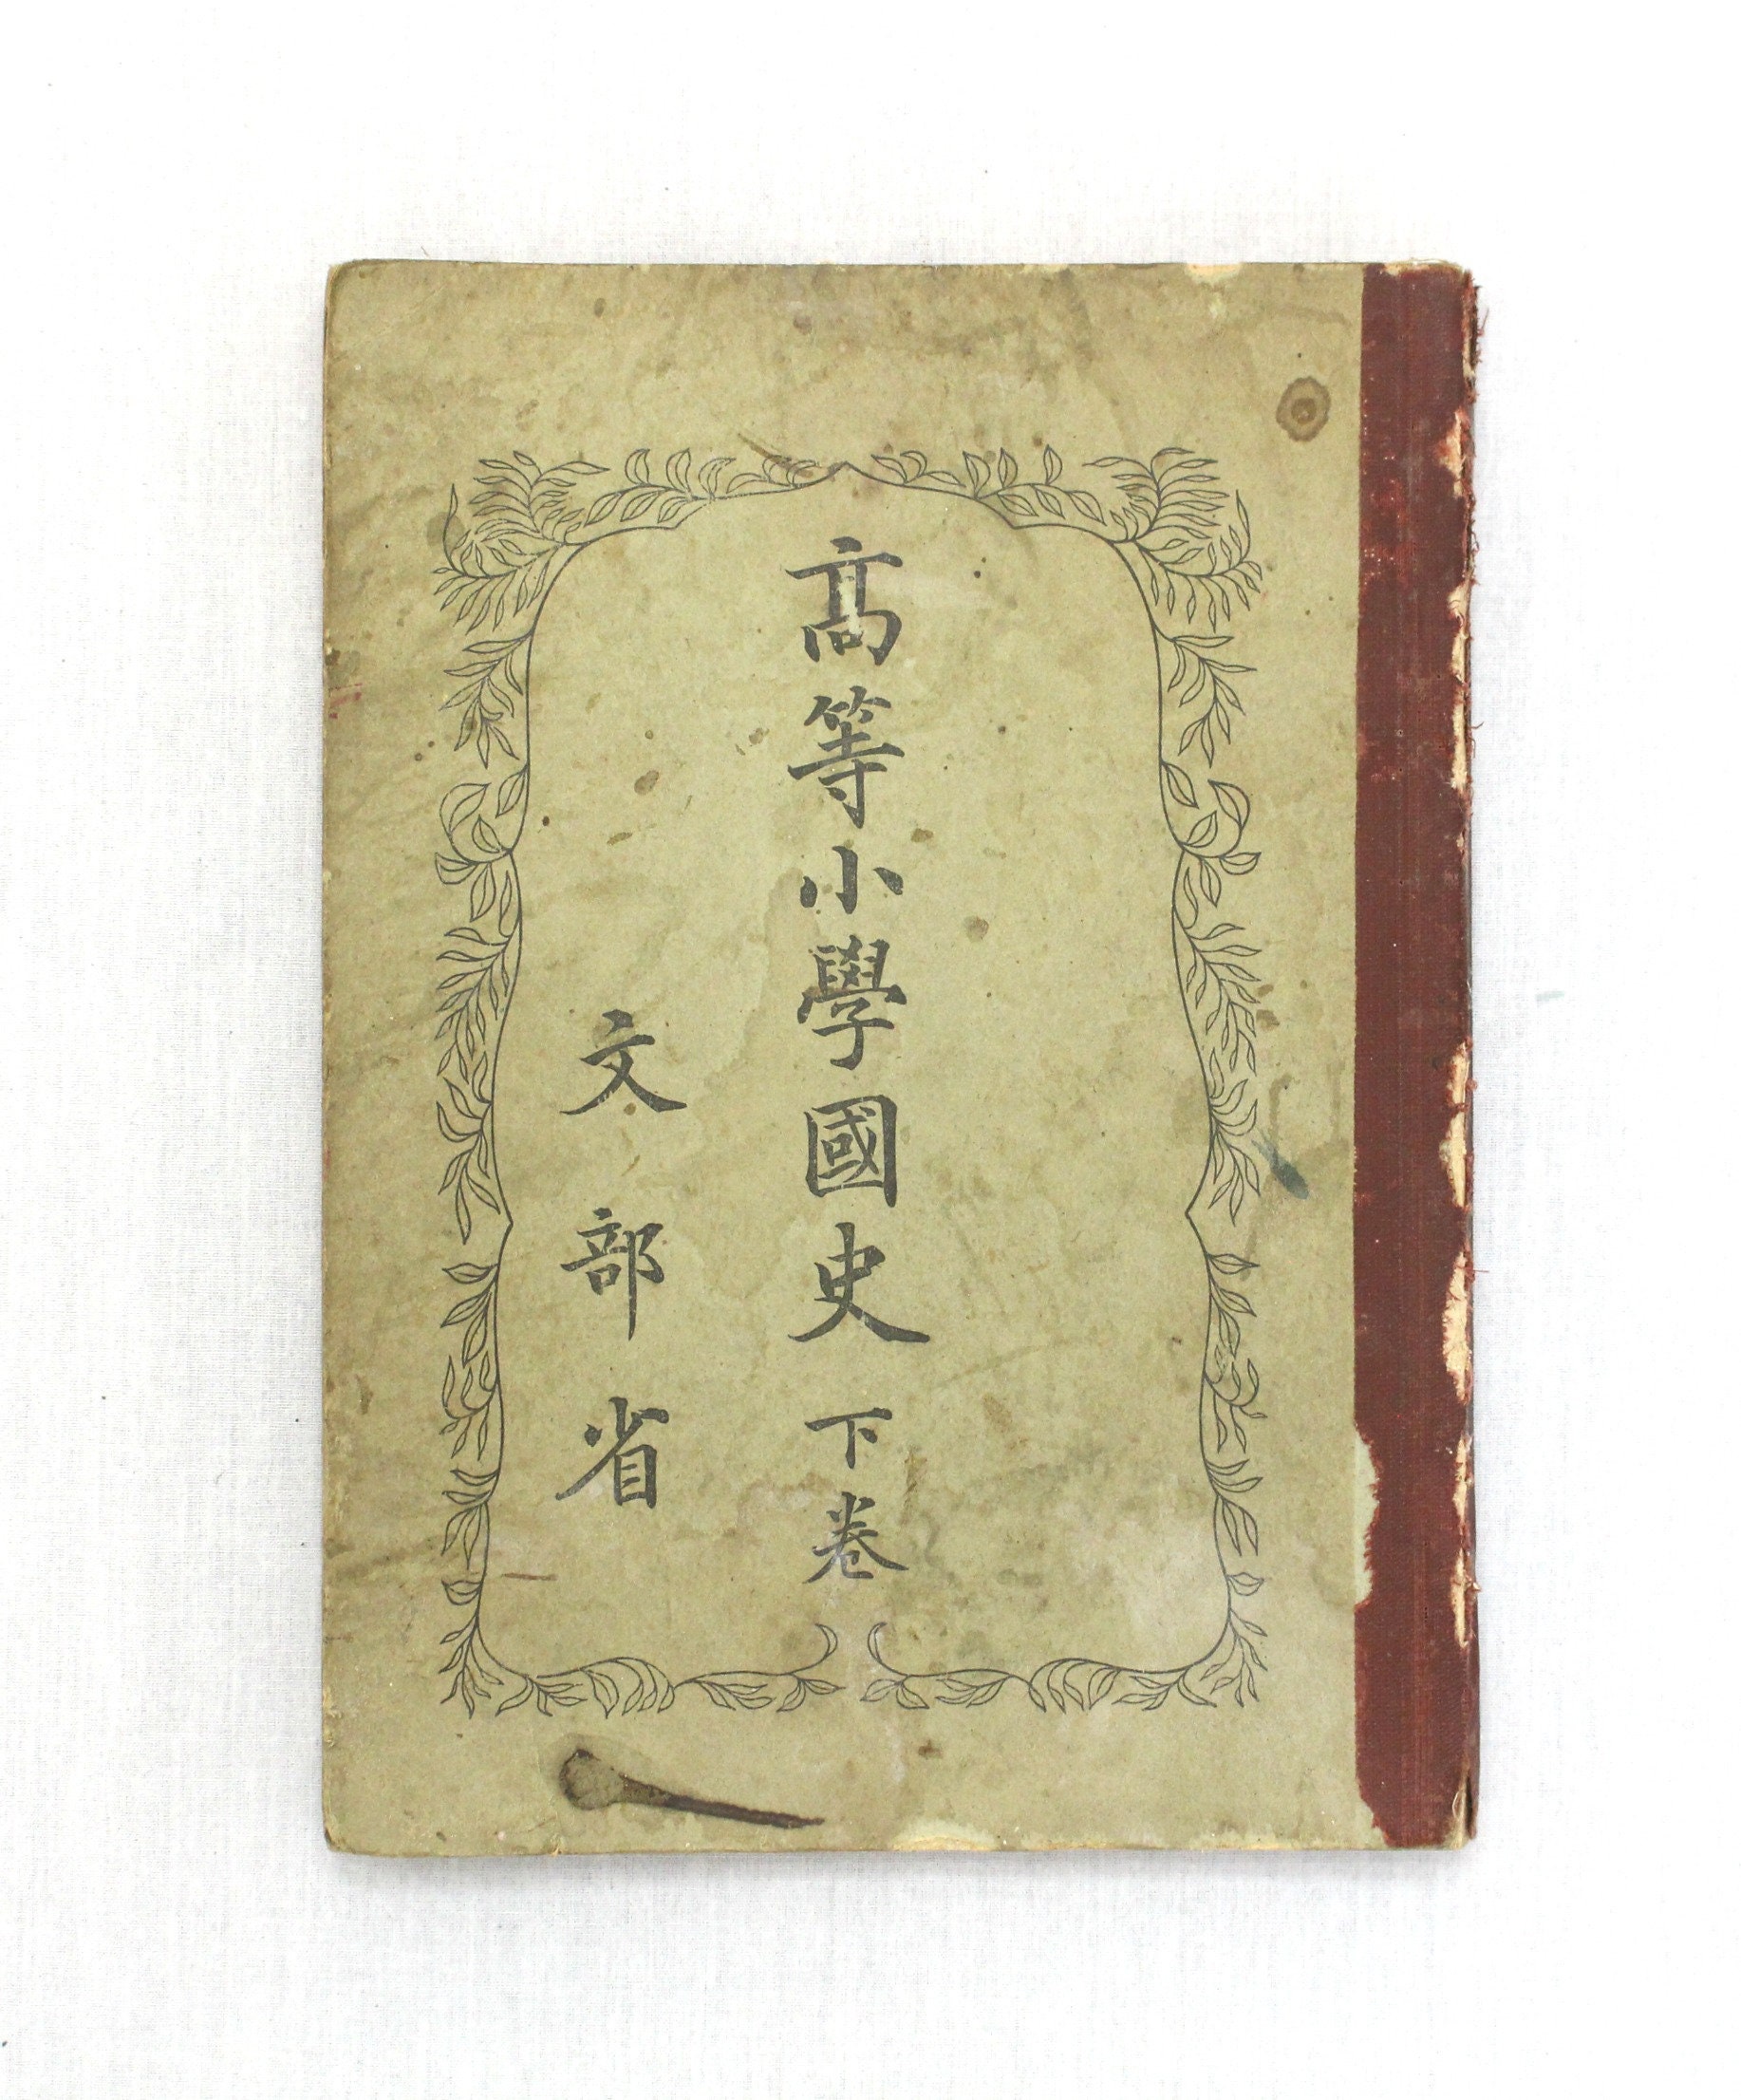 高等小學國史 下卷
文部省